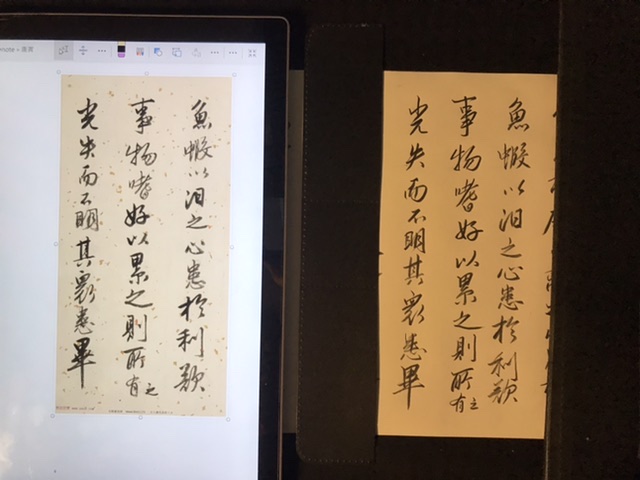 魚蝦以汩之心患於利欲
事物嗜好以累之則所有之
光失而不明其衆患畢
魚蝦以汩之心患於利欲
事物嗜好以累之則所有之
光失而不明其衆患畢